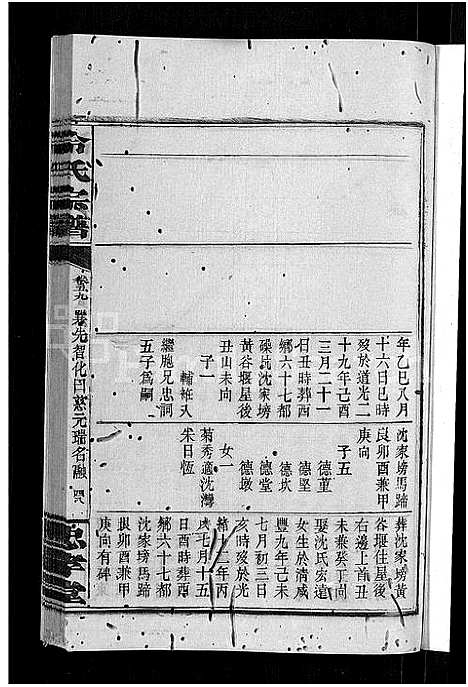 年乙巳八月
十六日巳時
歿於道光二
十九年己酉
三月二十一
日丑時葬西
鄉六十七都
磔坑沈家塝
黃谷堰星後
丑山未向
子一
輔袵入
繼胞兄忠詞
五子為嗣
沈家塝馬蹄
艮卯酉兼甲
庚向
子五
德董
德堅
德坎
德堂
德墩
女一
菊秀適沈灣
朱日恆
葬沈家塝黃
谷堰住屋後
右邊上首丑
未兼癸丁向
娶沈氏宏道
女生於清咸
豐九年己未
七月初三日
亥時歿於光
緒二年丙
戌七月十五
日酉時葬西
鄉六十七都
沈家塝馬蹄
艮卯酉兼甲
庚向有碑
氏宗譜
先智化日慈元瑞名融
堂